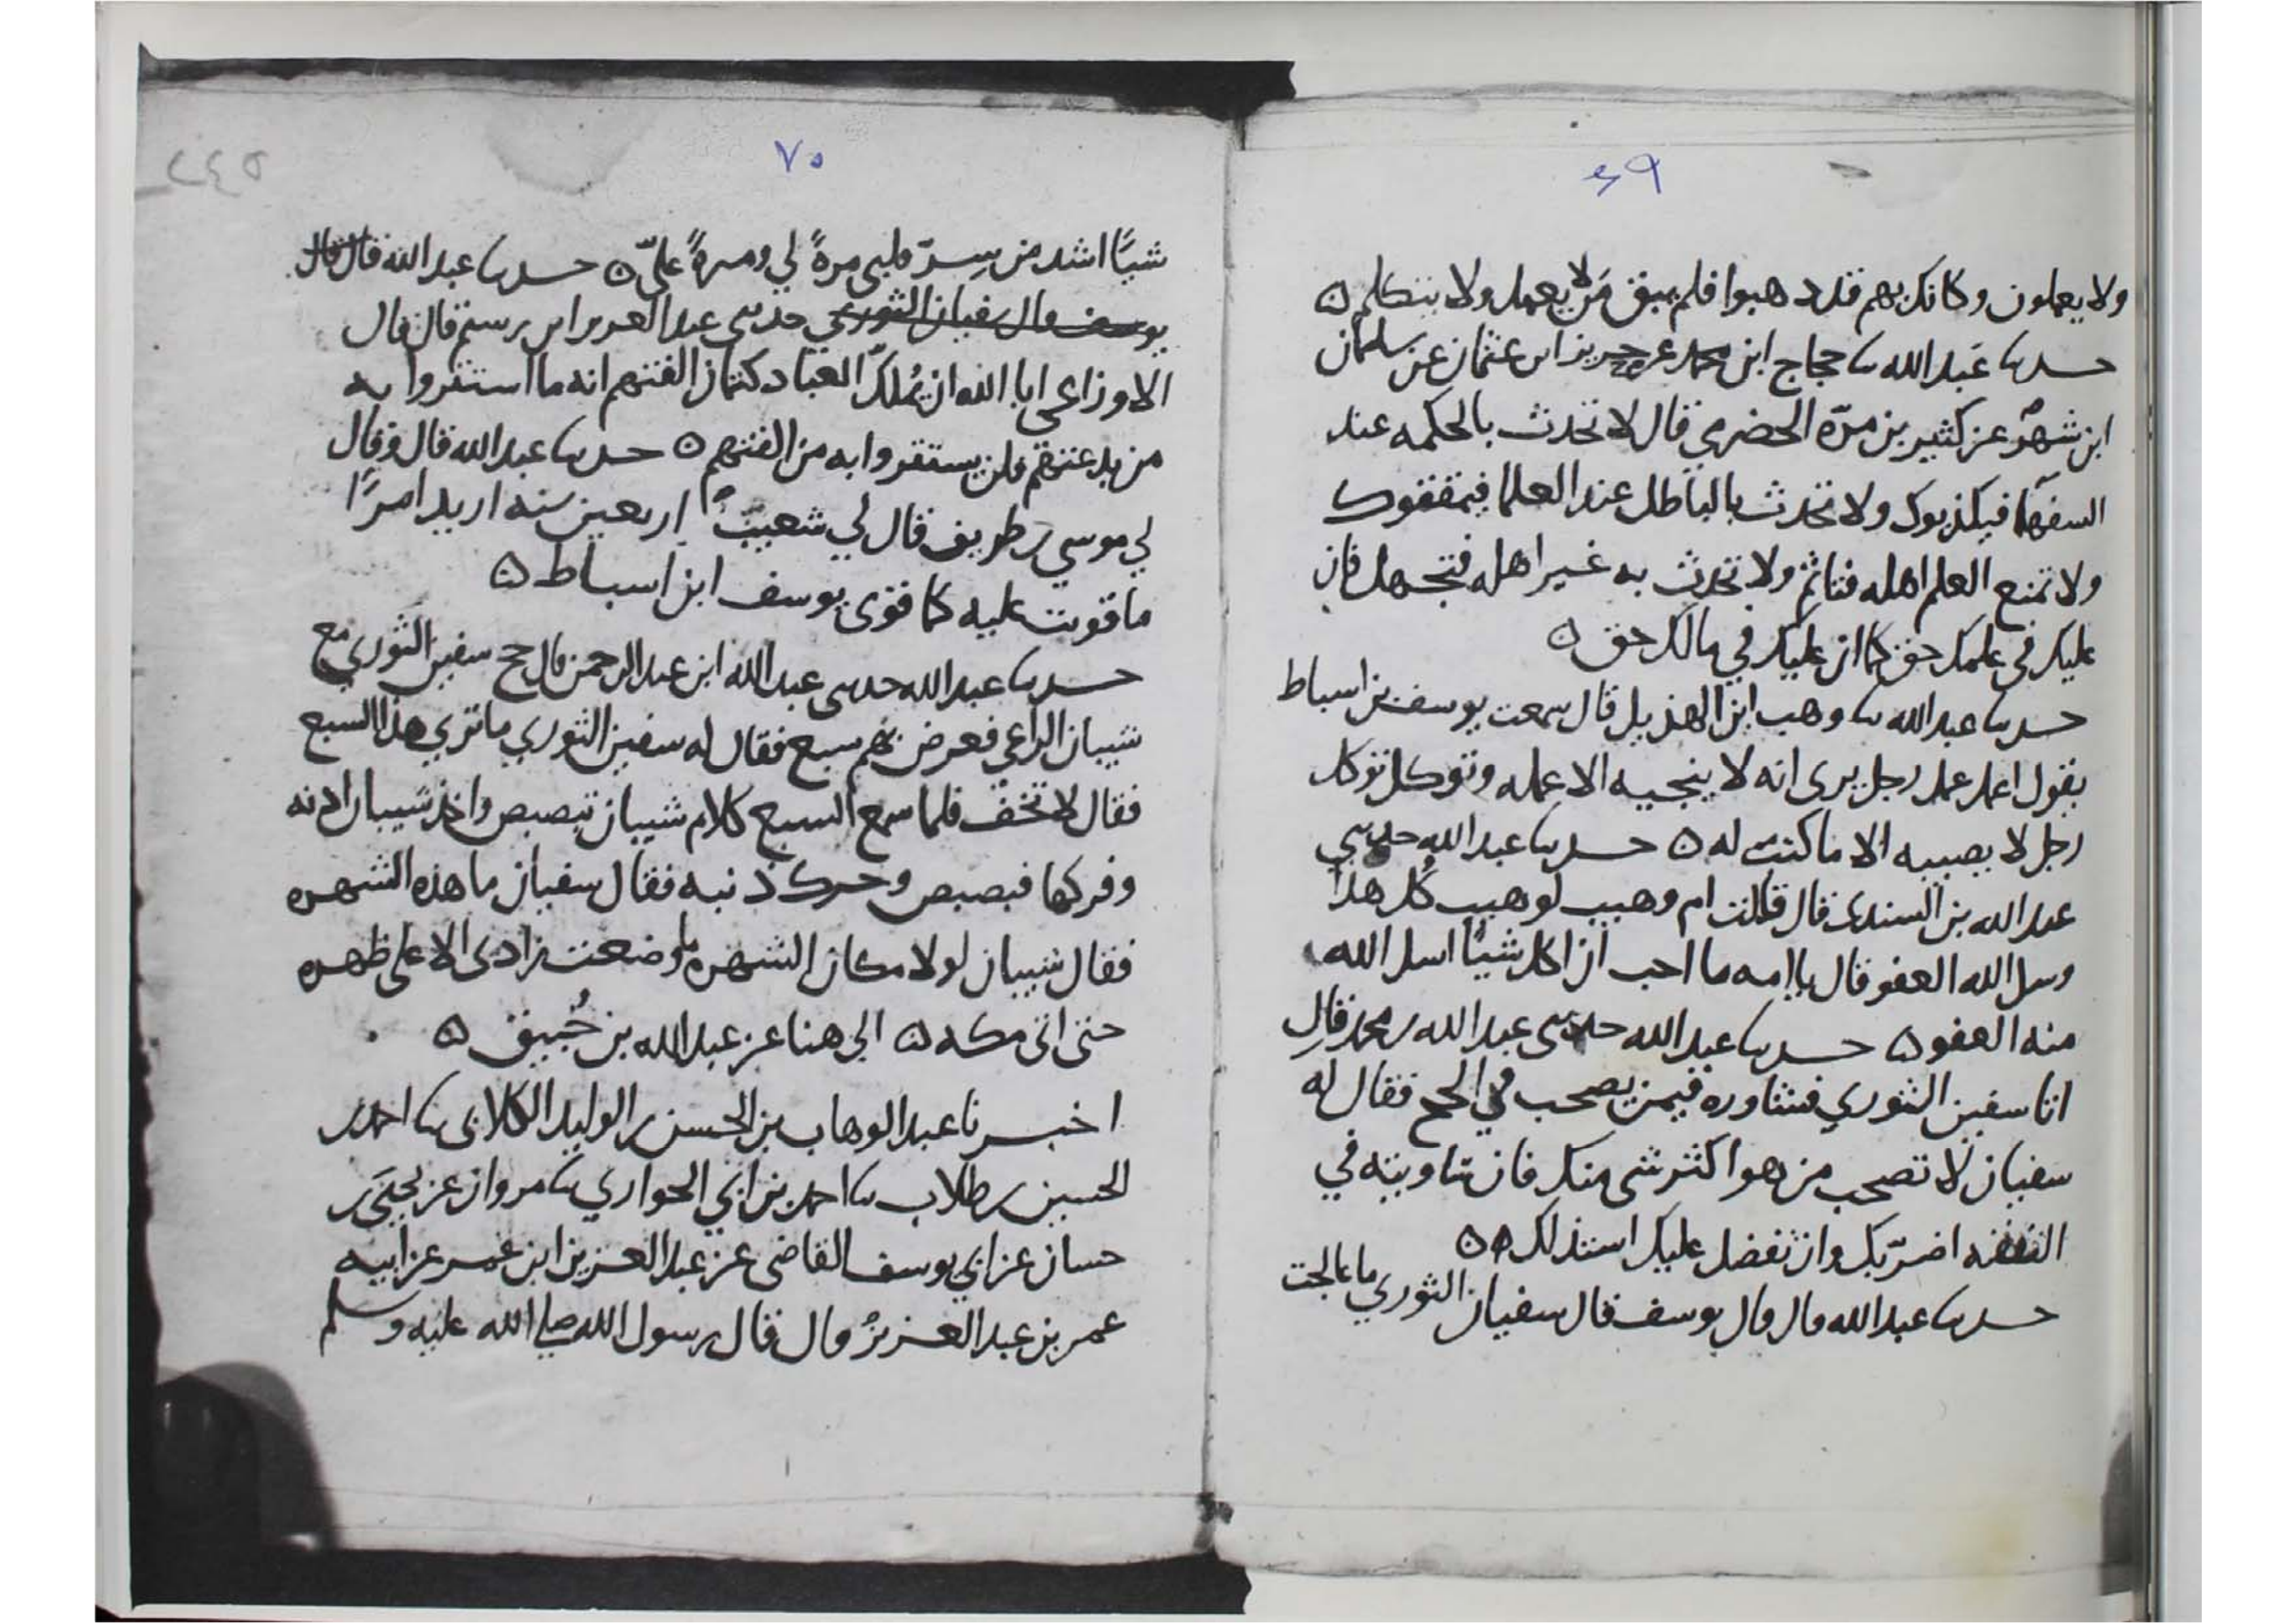 ٤٩
ولا يعملون وكانك بهم قد ذهبوا فلم يبق من لا يعمل ولا يتكلم ۞
حدثنا عبد الله نا حجاج ابن محمد عن حريز ابن عثمان عن سلمان
ابن شهر عن كثير بن مرّة الحضرمي قال لا تحدث بالحكمه عند
السفها فيكذبوك ولا تحدث بالباطل عند العلما فيمقتوك
ولا تمنع العلم اهله فتاثم ولا تحدث به غير اهله فتجهل فان
عليك في علمك حق كما ان عليك في مالك حق ۞
حدثنا عبد الله نا وهب ابن الهذيل قال سمعت يوسف بن اسباط
يقول اعمل عمل رجل يرى انه لا ينجيه الا عمله وتوكل توكل
رجل لا يصيبه الا ما كتب له ۞ حدثنا عبد الله حدثني
عبد الله بن السندى قال قالت ام وهيب لوهيب كُل هذا
وسل الله العفو قال يا امه ما احب ان اكل شيًا اسل الله
منه العفو ۞ حدثنا عبد الله حدثنى عبد الله بن محمد قال
اتا سفين الثوري فشاوره فيمن يصحب في الحج فقال له
سفيان لا تصحب من هو اكثر شى منك فان ساويته في
النفقه اضرّ بك وان تفضل عليك استذلك ۞
حدثنا عبد الله قال قال يوسف قال سفيان الثوري ما عالجت
٧٠
شيًا اشد من سرّ قلبى مرةً لي ومرةً عليّ ۞ حدثنا عبد الله قال قال
يوسف قال سفيان الثوري حدثنى عبد العزيز ابن رستم قال قال
الاوزاعى ابا الله ان يُملك العباد كتمان الفتهم انه ما استقروا به
من بدعتهم فلن يستقروا به من الفتهم ۞ حدثنا عبد الله قال وقال
لي موسي بن طريف قال لي شعيب اربعين سنه اريد امرًا
ما قويت عليه كما قوى يوسف ابن اسباط ۞
حدثنا عبد الله حدثنى عبد الله ابن عبد الرحمن قال حج سفين الثوري مع
شيبان الراعي فعرض لهم سبع فقال له سفين الثوري ما تري هذا السبع
فقال لا تخف فلما سمع السبع كلام شيبان تبصبص واخذ شيبان اذنه
وفركها فبصبص وحرك ذنبه فقال سفيان ما هذه الشهره
فقال شيبان لولا مكان الشهره ما وضعت زادى الا على ظهره
حتى اتى مكه ۞ الى هنا عن عبد الله بن خُبيق ۞
اخبرنا عبد الوهاب بن الحسن بن الوليد الكلابى نا احمد بن
الحسين بن طلاب نا احمد بن ابي الحواري نا مروان عن يحيَى بن
حسان عن ابي يوسف القاضى عن عبد العزيز ابن عمر عن ابيه
عمر بن عبد العزيز قال قال رسول الله صلى الله عليه وسلم